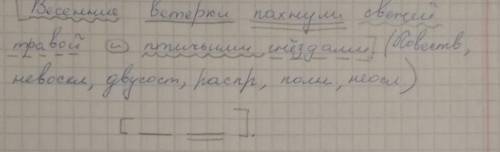 [Весенние ветерки пахнули свежей
травой и птичьими гнёздами] (Повеств,
невоскл, двусост, распр, полн, неосл)
[ ].